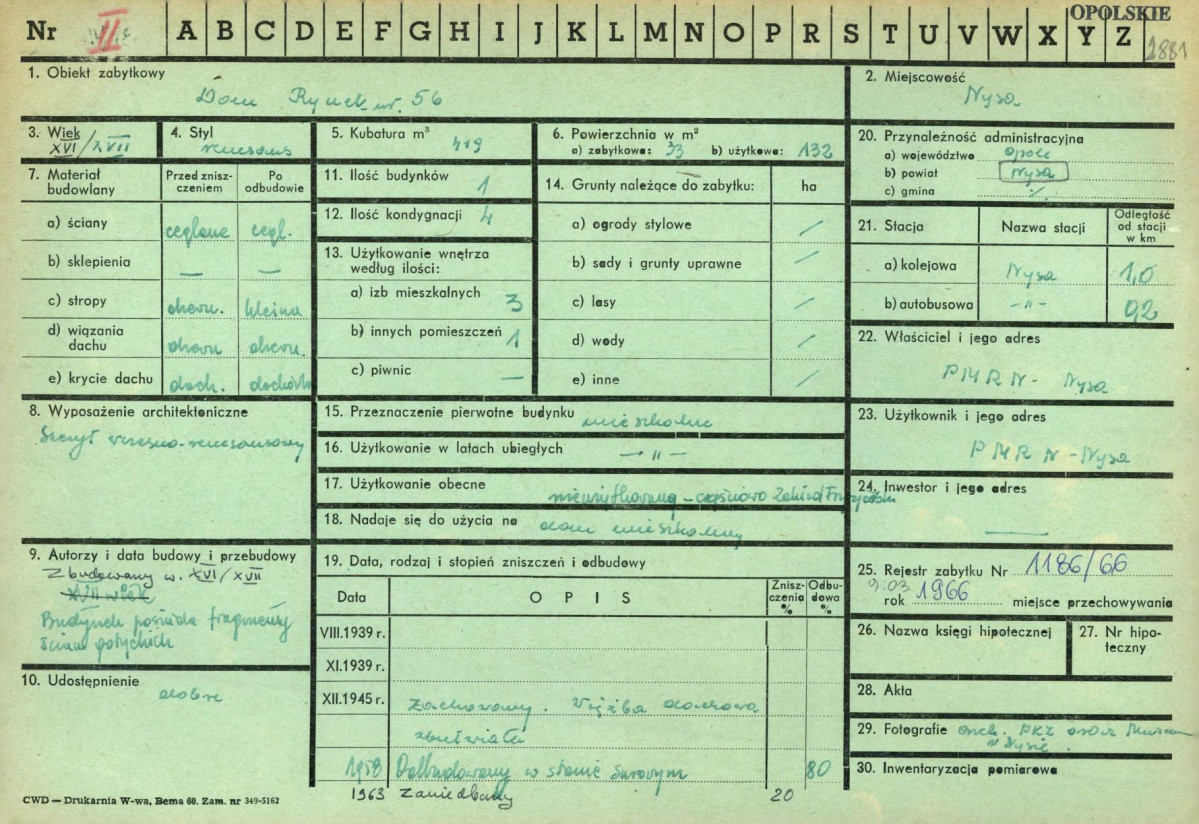 OPOLSKIE
Nr II A B C D E F G H I J K L M N O P R S T U V W X Y Z
2881
1. Obiekt zabytkowy
Dom Rynek nr. 56
2. Miejscowość
Nysa
3. Wiek
XVI/XVII
4. Styl
renesans
5. Kubatura m³
419
6. Powierzchnia w m²
a) zabytkowa: 33 b) użytkowa: 132
20. Przynależność administracyjna
a) województwo opole
b) powiat Nysa
c) gmina %
7. Materiał budowlany
Przed zniszczeniem
Po odbudowie
a) ściany ceglane cegl.
b) sklepienia — —
c) stropy drewn. kleina
d) wiązania dachu drewn drewn.
e) krycie dachu dach. dachówka
11. Ilość budynków 1
12. Ilość kondygnacji 4
13. Użytkowanie wnętrza według ilości:
a) izb mieszkalnych 3
b) innych pomieszczeń 1
c) piwnic —
14. Grunty należące do zabytku: ha
a) ogrody stylowe /
b) sady i grunty uprawne /
c) lasy /
d) wody /
e) inne /
21. Stacja Nazwa stacji Odległość od stacji w km
a) kolejowa Nysa 1,0
b) autobusowa -"- 0,2
22. Właściciel i jego adres
PMRN - Nysa
8. Wyposażenie architektoniczne
Szczyt wczesno-renesansowy
15. Przeznaczenie pierwotne budynku mieszkalne
16. Użytkowanie w latach ubiegłych —"—
17. Użytkowanie obecne nieużytkowany - częściowo Zakład Fryzjerski
18. Nadaje się do użycia na dom mieszkalny
23. Użytkownik i jego adres
PMRN - Nysa
24. Inwestor i jego adres
—
9. Autorzy i data budowy i przebudowy
Zbudowany w. XVI/XVII
XVII wiek
Budynek posiada fragmenty
ścian gotyckich
10. Udostępnienie
dobre
19. Data, rodzaj i stopień zniszczeń i odbudowy
Data OPIS Zniszczenia % Odbudowa %
VIII.1939 r.
XI.1939 r.
XII.1945 r. Zachowany. Więźba dachowa
zbutwiała
1958 Odbudowany w stanie surowym 80
1963 Zaniedbany 20
25. Rejestr zabytku Nr 1186/66
9.03 rok 1966 miejsce przechowywania
26. Nazwa księgi hipotecznej
27. Nr hipoteczny
28. Akta
29. Fotografie arch. PKZ oraz Muzeum
w Nysie.
30. Inwentaryzacja pomiarowa
CWD — Drukarnia W-wa, Bema 60. Zam. nr 349-5162